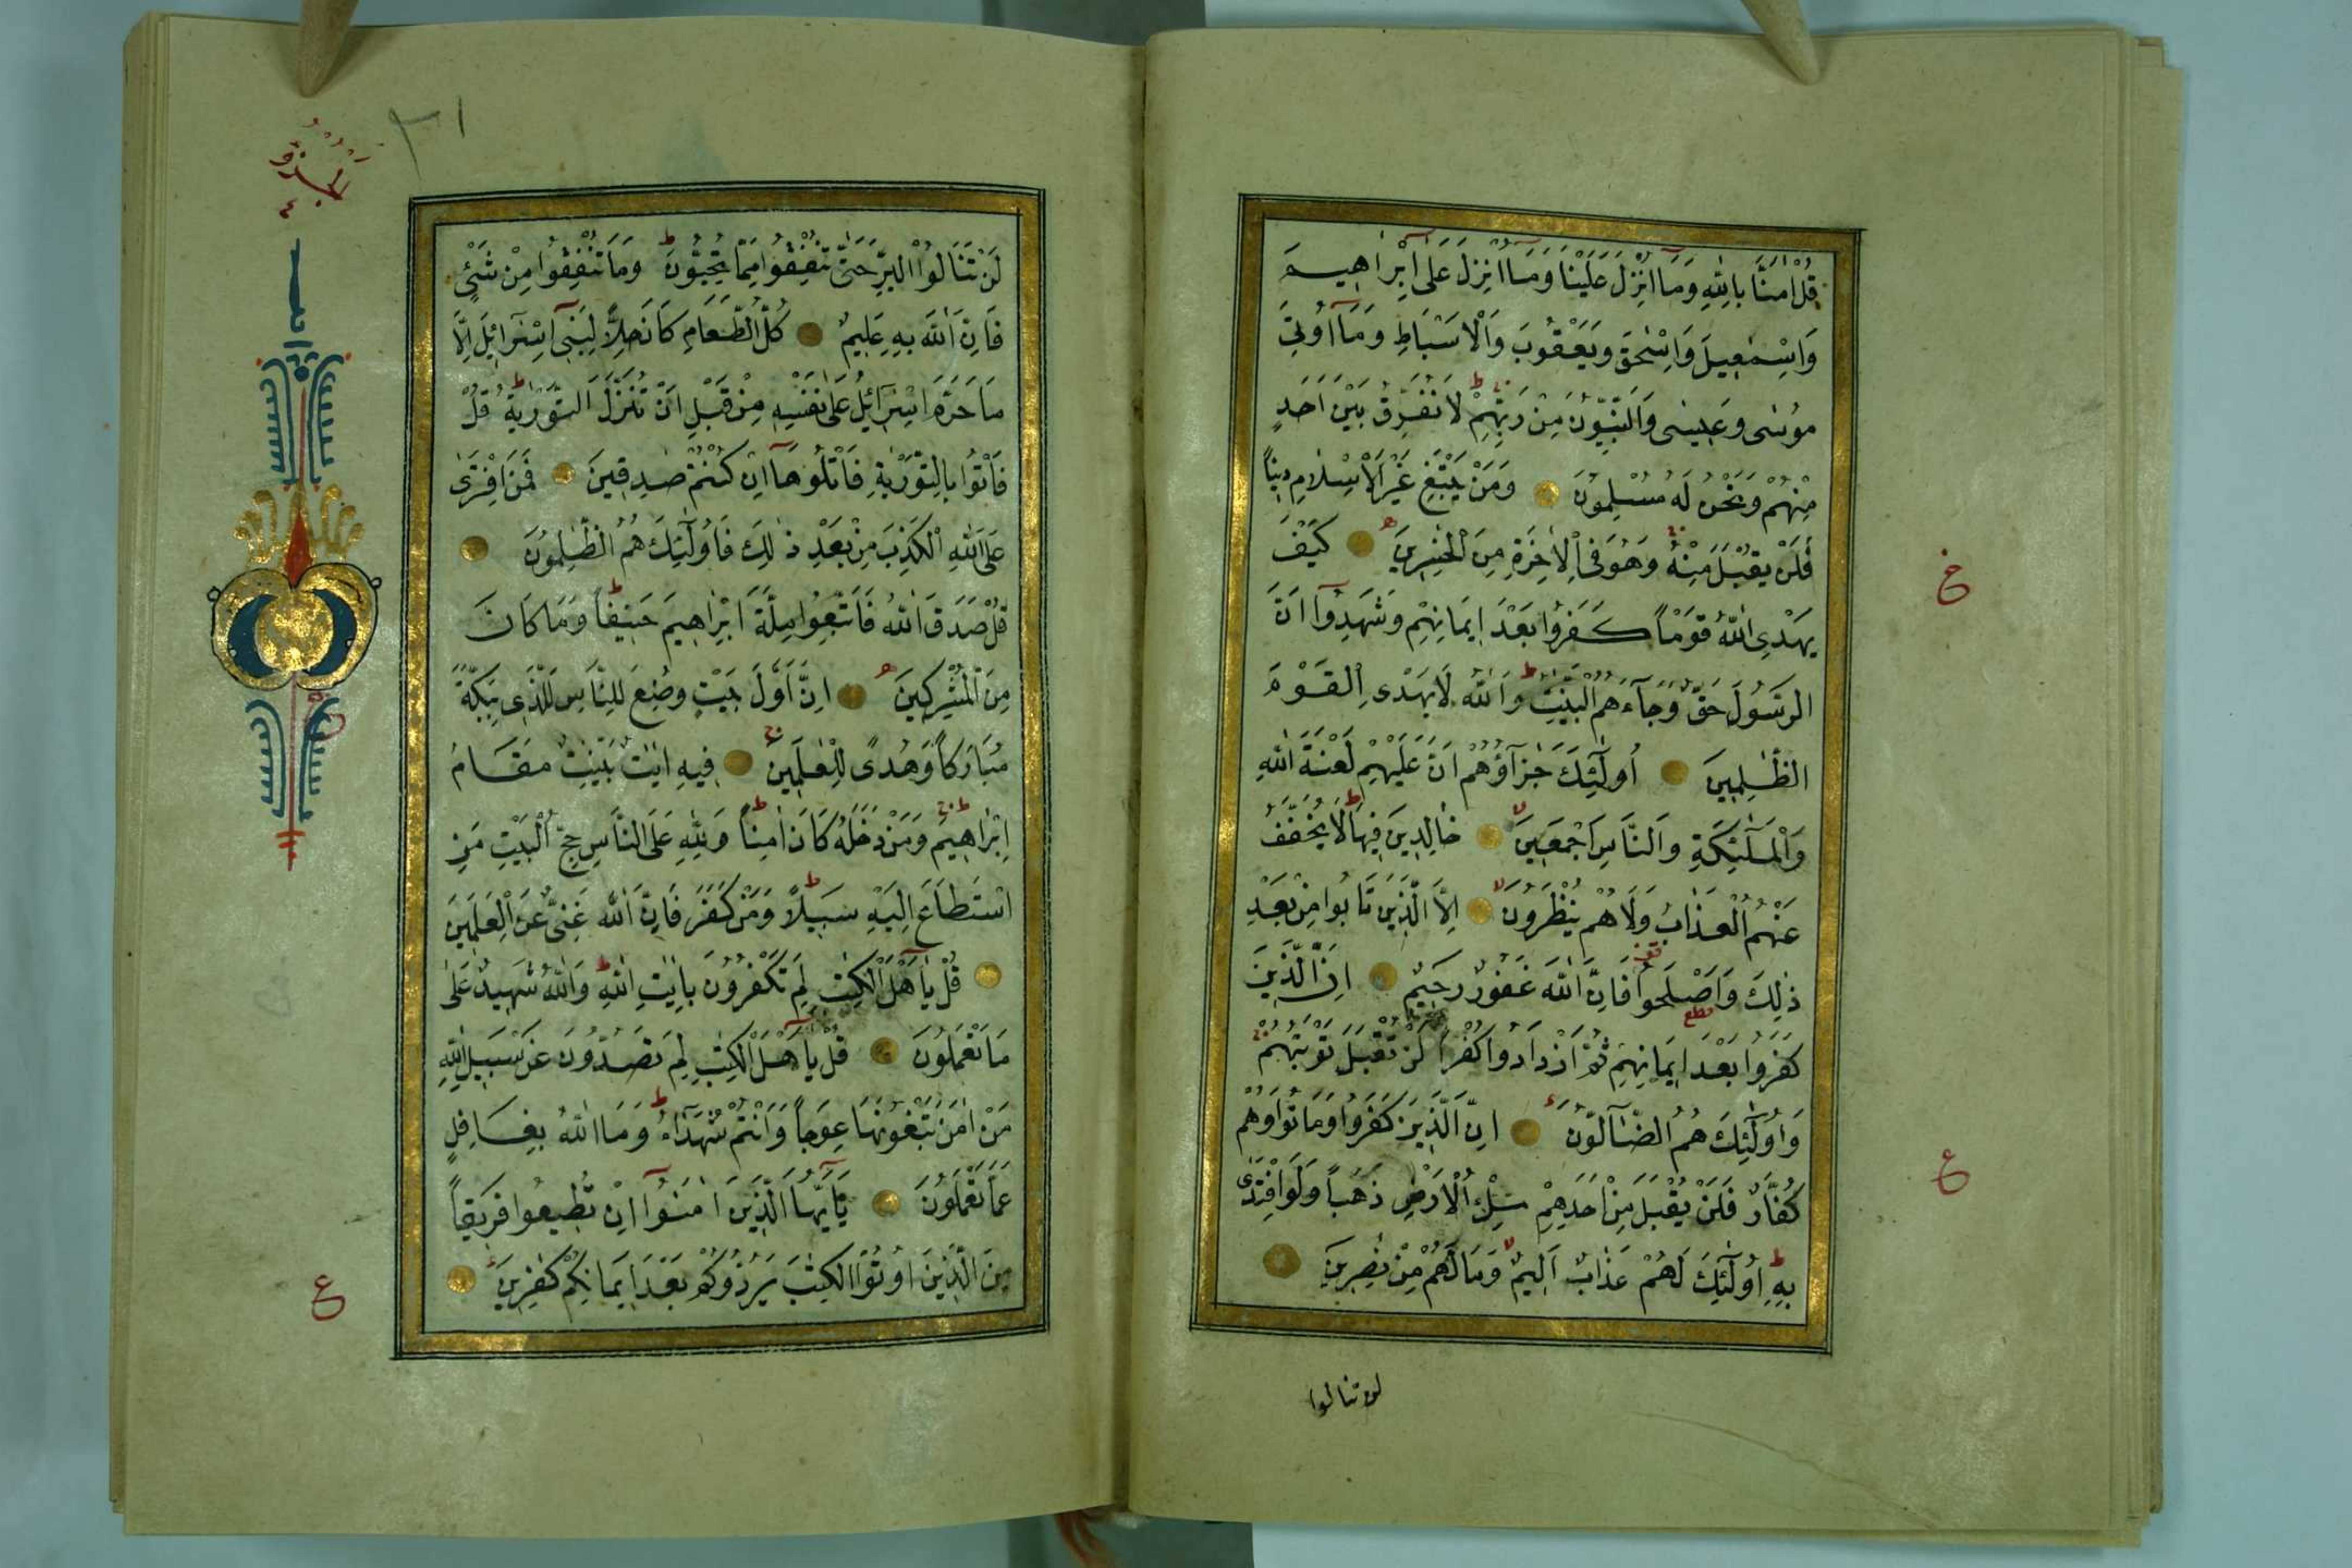 قُلْ اٰمَنَّا بِاللّٰهِ وَمَٓا اُنْزِلَ عَلَيْنَا وَمَٓا اُنْزِلَ عَلٰٓى اِبْرٰاهِيمَ
وَاِسْمٰعِيلَ وَاِسْحٰقَ وَيَعْقُوبَ وَالْاَسْبَاطِ وَمَٓا اُوتِيَ
مُوسٰى وَعِيسٰى وَالنَّبِيُّونَ مِنْ رَبِّهِمْ لَا نُفَرِّقُ بَيْنَ اَحَدٍ
مِنْهُمْ وَنَحْنُ لَهُ مُسْلِمُونَ وَمَنْ يَبْتَغِ غَيْرَ الْاِسْلَامِ دِينًا
فَلَنْ يُقْبَلَ مِنْهُ وَهُوَ فِي الْاٰخِرَةِ مِنَ الْخٰسِرِينَ كَيْفَ
يَهْدِي اللّٰهُ قَوْمًا كَفَرُوا بَعْدَ اِيمَانِهِمْ وَشَهِدُٓوا اَنَّ
الرَّسُولَ حَقٌّ وَجَٓاءَهُمُ الْبَيِّنٰتُ وَاللّٰهُ لَا يَهْدِي الْقَوْمَ
الظّٰلِمِينَ اُولٰٓئِكَ جَزَٓاؤُهُمْ اَنَّ عَلَيْهِمْ لَعْنَةَ اللّٰهِ
وَالْمَلٰٓئِكَةِ وَالنَّاسِ اَجْمَعِينَ خَالِدِينَ فِيهَا لَا يُخَفَّفُ
عَنْهُمُ الْعَذَابُ وَلَا هُمْ يُنْظَرُونَ اِلَّا الَّذِينَ تَابُوا مِنْ بَعْدِ
ذٰلِكَ وَاَصْلَحُوا فَاِنَّ اللّٰهَ غَفُورٌ رَحِيمٌ اِنَّ الَّذِينَ
كَفَرُوا بَعْدَ اِيمَانِهِمْ ثُمَّ ازْدَادُوا كُفْرًا لَنْ تُقْبَلَ تَوْبَتُهُمْ
وَاُولٰٓئِكَ هُمُ الضَّٓالُّونَ اِنَّ الَّذِينَ كَفَرُوا وَمَاتُوا وَهُمْ
كُفَّارٌ فَلَنْ يُقْبَلَ مِنْ اَحَدِهِمْ مِلْءُ الْاَرْضِ ذَهَبًا وَلَوِ افْتَدٰى
بِهِ اُولٰٓئِكَ لَهُمْ عَذَابٌ اَلِيمٌ وَمَا لَهُمْ مِنْ نٰصِرِينَ
لن تنالوا
ع
الجزؤ
٤
٣١
لَنْ تَنَالُوا الْبِرَّ حَتّٰى تُنْفِقُوا مِمَّا تُحِبُّونَ وَمَا تُنْفِقُوا مِنْ شَيْءٍ
فَاِنَّ اللّٰهَ بِهِ عَلِيمٌ كُلُّ الطَّعَامِ كَانَ حِلًّا لِبَنِٓي اِسْرَٓائِيلَ اِلَّا
مَا حَرَّمَ اِسْرَٓائِيلُ عَلٰى نَفْسِهِ مِنْ قَبْلِ اَنْ تُنَزَّلَ التَّوْرٰيةُ قُلْ
فَأْتُوا بِالتَّوْرٰيةِ فَاتْلُوهَٓا اِنْ كُنْتُمْ صٰدِقِينَ فَمَنِ افْتَرٰى
عَلَى اللّٰهِ الْكَذِبَ مِنْ بَعْدِ ذٰلِكَ فَاُولٰٓئِكَ هُمُ الظّٰلِمُونَ
قُلْ صَدَقَ اللّٰهُ فَاتَّبِعُوا مِلَّةَ اِبْرٰاهِيمَ حَنِيفًا وَمَا كَانَ
مِنَ الْمُشْرِكِينَ اِنَّ اَوَّلَ بَيْتٍ وُضِعَ لِلنَّاسِ لَلَّذِي بِبَكَّةَ
مُبَارَكًا وَهُدًى لِلْعٰلَمِينَ فِيهِ اٰيٰتٌ بَيِّنٰتٌ مَقَامُ
اِبْرٰاهِيمَ وَمَنْ دَخَلَهُ كَانَ اٰمِنًا وَلِلّٰهِ عَلَى النَّاسِ حِجُّ الْبَيْتِ مَنِ
اسْتَطَاعَ اِلَيْهِ سَبِيلًا وَمَنْ كَفَرَ فَاِنَّ اللّٰهَ غَنِيٌّ عَنِ الْعٰلَمِينَ
قُلْ يَٓا اَهْلَ الْكِتٰبِ لِمَ تَكْفُرُونَ بِاٰيٰتِ اللّٰهِ وَاللّٰهُ شَهِيدٌ عَلٰى
مَا تَعْمَلُونَ قُلْ يَٓا اَهْلَ الْكِتٰبِ لِمَ تَصُدُّونَ عَنْ سَبِيلِ اللّٰهِ
مَنْ اٰمَنَ تَبْغُونَهَا عِوَجًا وَاَنْتُمْ شُهَدَٓاءُ وَمَا اللّٰهُ بِغَافِلٍ
عَمَّا تَعْمَلُونَ يَٓا اَيُّهَا الَّذِينَ اٰمَنُٓوا اِنْ تُطِيعُوا فَرِيقًا
مِنَ الَّذِينَ اُوتُوا الْكِتٰبَ يَرُدُّوكُمْ بَعْدَ اِيمَانِكُمْ كٰفِرِينَ
ع